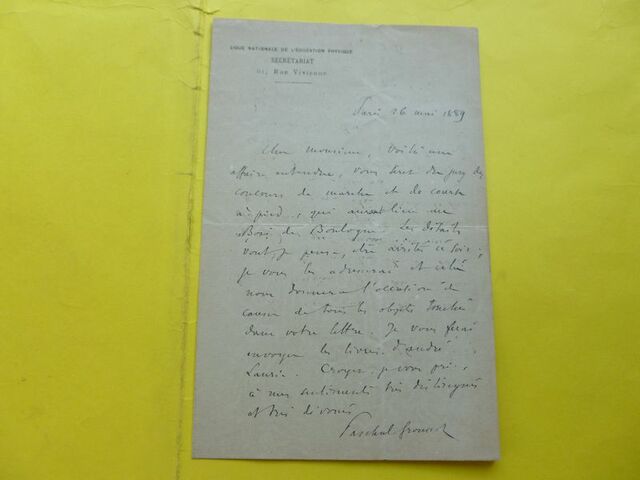 LIGUE NATIONALE DE L'ÉDUCATION PHYSIQUE
SECRÉTARIAT
51, Rue Vivienne
Paris 26 mai 1889
Cher monsieur, Voilà une
affaire entendue, vous serez du jury des
concours de marche et de course
à pied, qui auront lieu au
Bois de Boulogne. Les détails
vont, je pense, être arrêtés ce soir;
je vous les adresserai et cela
nous donnera l'occasion de
causer de tous les objets touchés
dans votre lettre. Je vous ferai
envoyer les livres d'André
Laurie. Croyez, je vous prie,
à mes sentiments très distingués
et très dévoués
Paschal Grousset